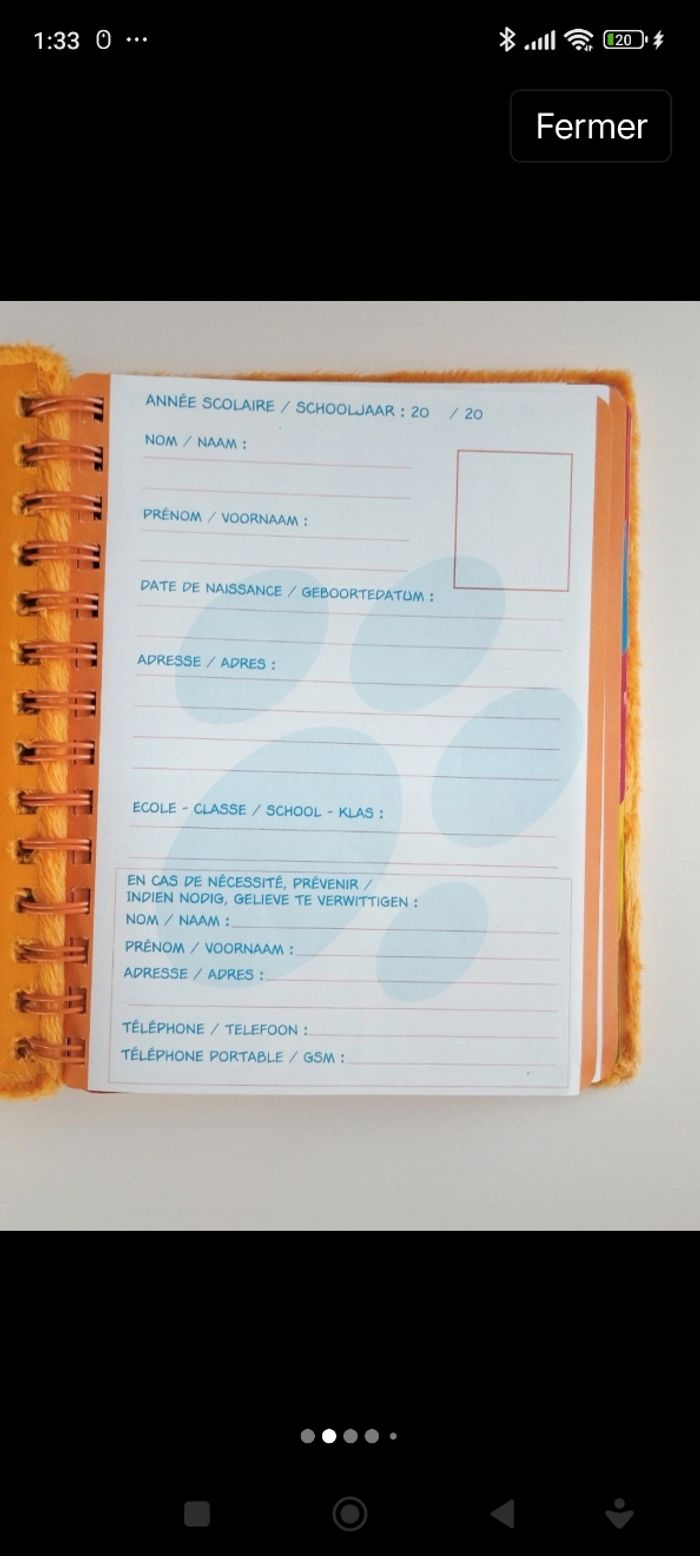 1:33
20
Fermer
ANNÉE SCOLAIRE / SCHOOLJAAR : 20 / 20
NOM / NAAM :
PRÉNOM / VOORNAAM :
DATE DE NAISSANCE / GEBOORTEDATUM :
ADRESSE / ADRES :
ECOLE - CLASSE / SCHOOL - KLAS :
EN CAS DE NÉCESSITÉ, PRÉVENIR /
INDIEN NODIG, GELIEVE TE VERWITTIGEN :
NOM / NAAM :
PRÉNOM / VOORNAAM :
ADRESSE / ADRES :
TÉLÉPHONE / TELEFOON :
TÉLÉPHONE PORTABLE / GSM :